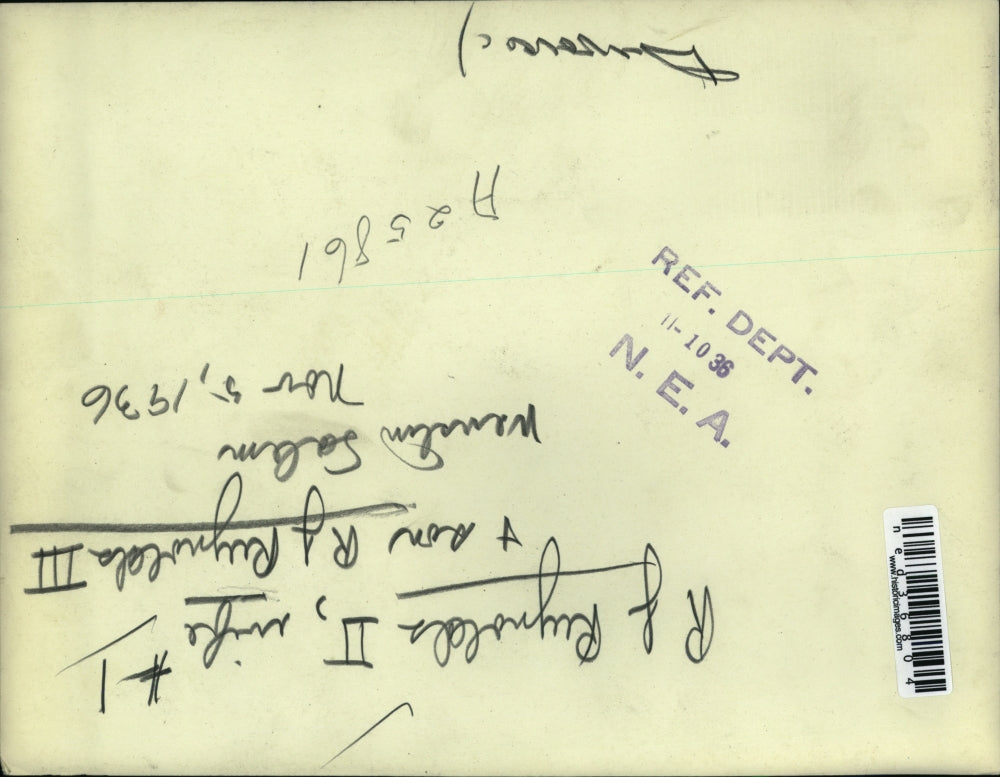 R J Reynolds II, wife #1
+ son R J Reynolds III
Winston Salem
Nov 5, 1936
A 25861
REF. DEPT.
11-10 36
N. E. A.
ned36804
www.historicimages.com